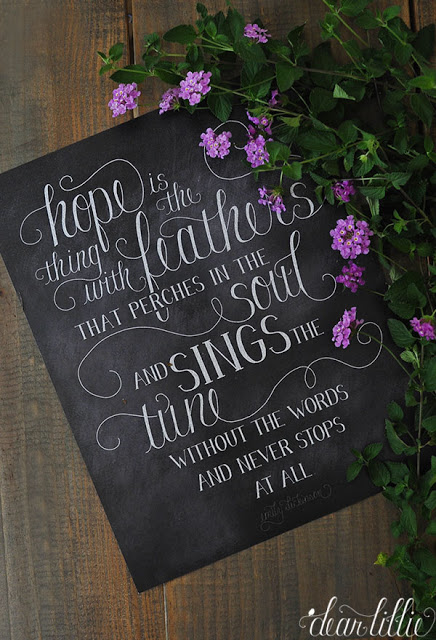 hope is the
thing with feathers
THAT PERCHES IN THE
soul
AND SINGS THE
tune
WITHOUT THE WORDS
AND NEVER STOPS
AT ALL
emily dickinson
dear lillie